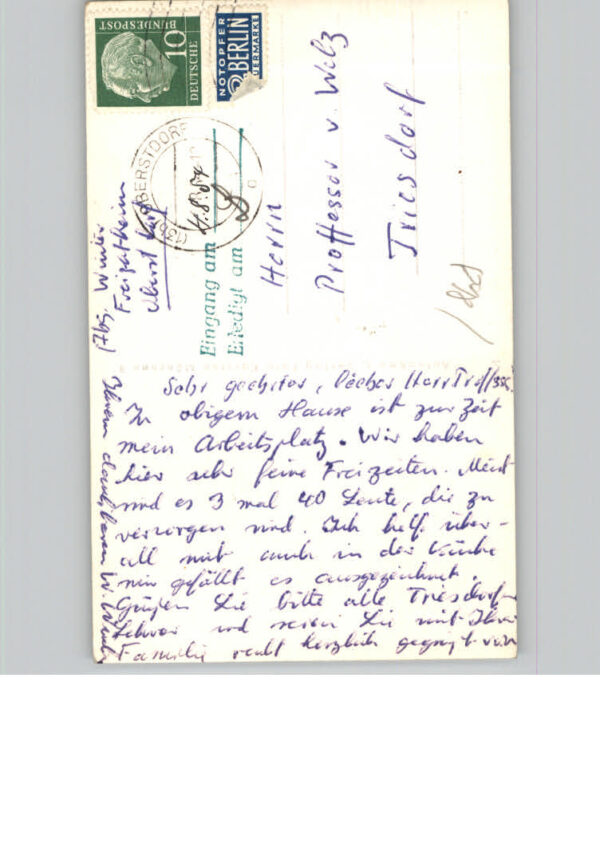 DEUTSCHE
BUNDESPOST
10
NOTOPFER
2 BERLIN
STEUERMARKE
(13b) OBERSTDORF
4.8.54
Eingang am
Erledigt am
Abg. Winter
Freizeitheim
Herrn
Proffessor v. Welz
Triesdorf
Sehr geehrter, lieber Herr Proffessor!
In obigem Hause ist zur Zeit
mein Arbeitsplatz. Wir haben
hier sehr feine Freizeiten. Meist
sind es 3 mal 40 Leute, die zu
versorgen sind. Ich helf über-
all mit auch in der Küche
mir gefällt es ausgezeichnet.
Grüßen Sie bitte alle Triesdorfer
Lehrer und seien Sie mit Ihrer
Familie recht herzlich gegrüßt von
Ihrem dankbaren W. Winter